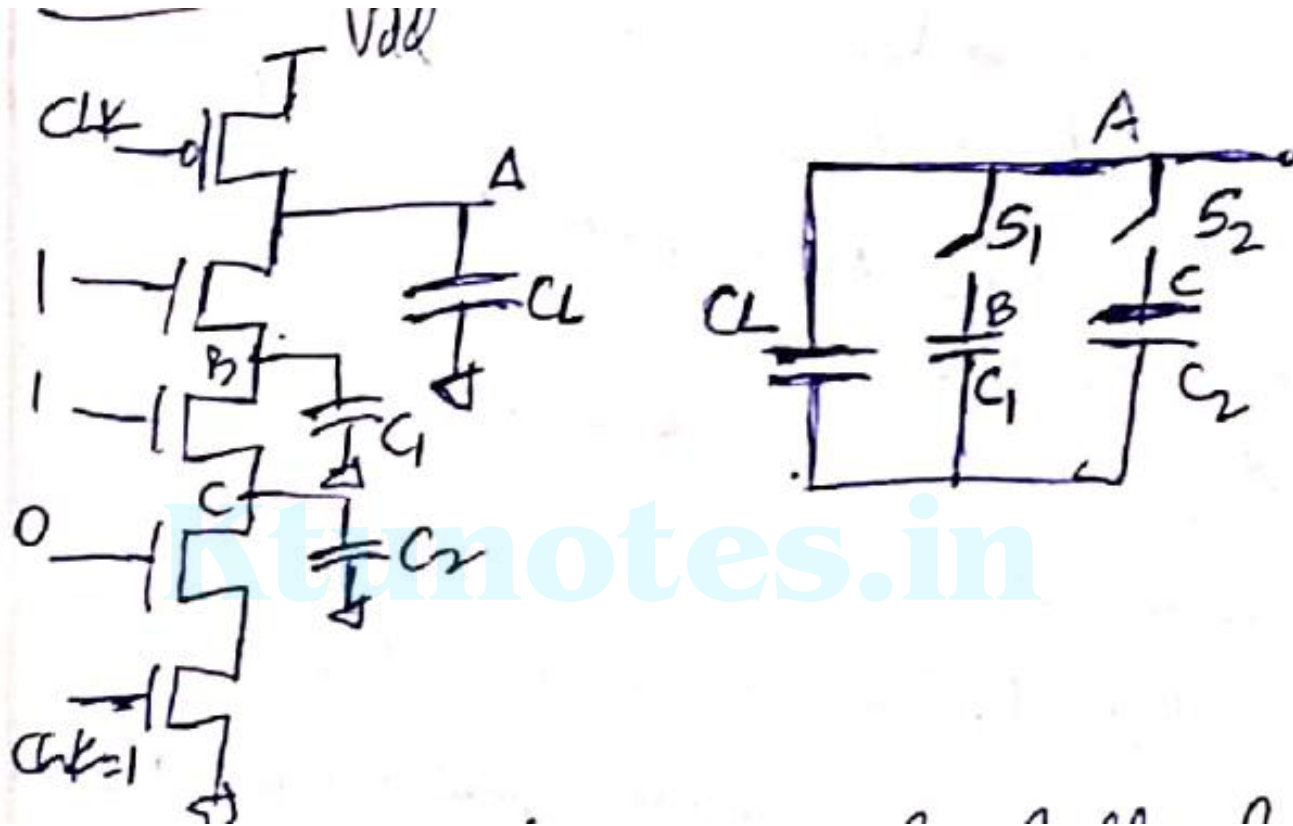 Vdd
CLK
A
1
CL
B
1
C1
C
0
C2
CLK=1
A
S1
S2
CL
B
C
C1
C2
Ktunotes.in